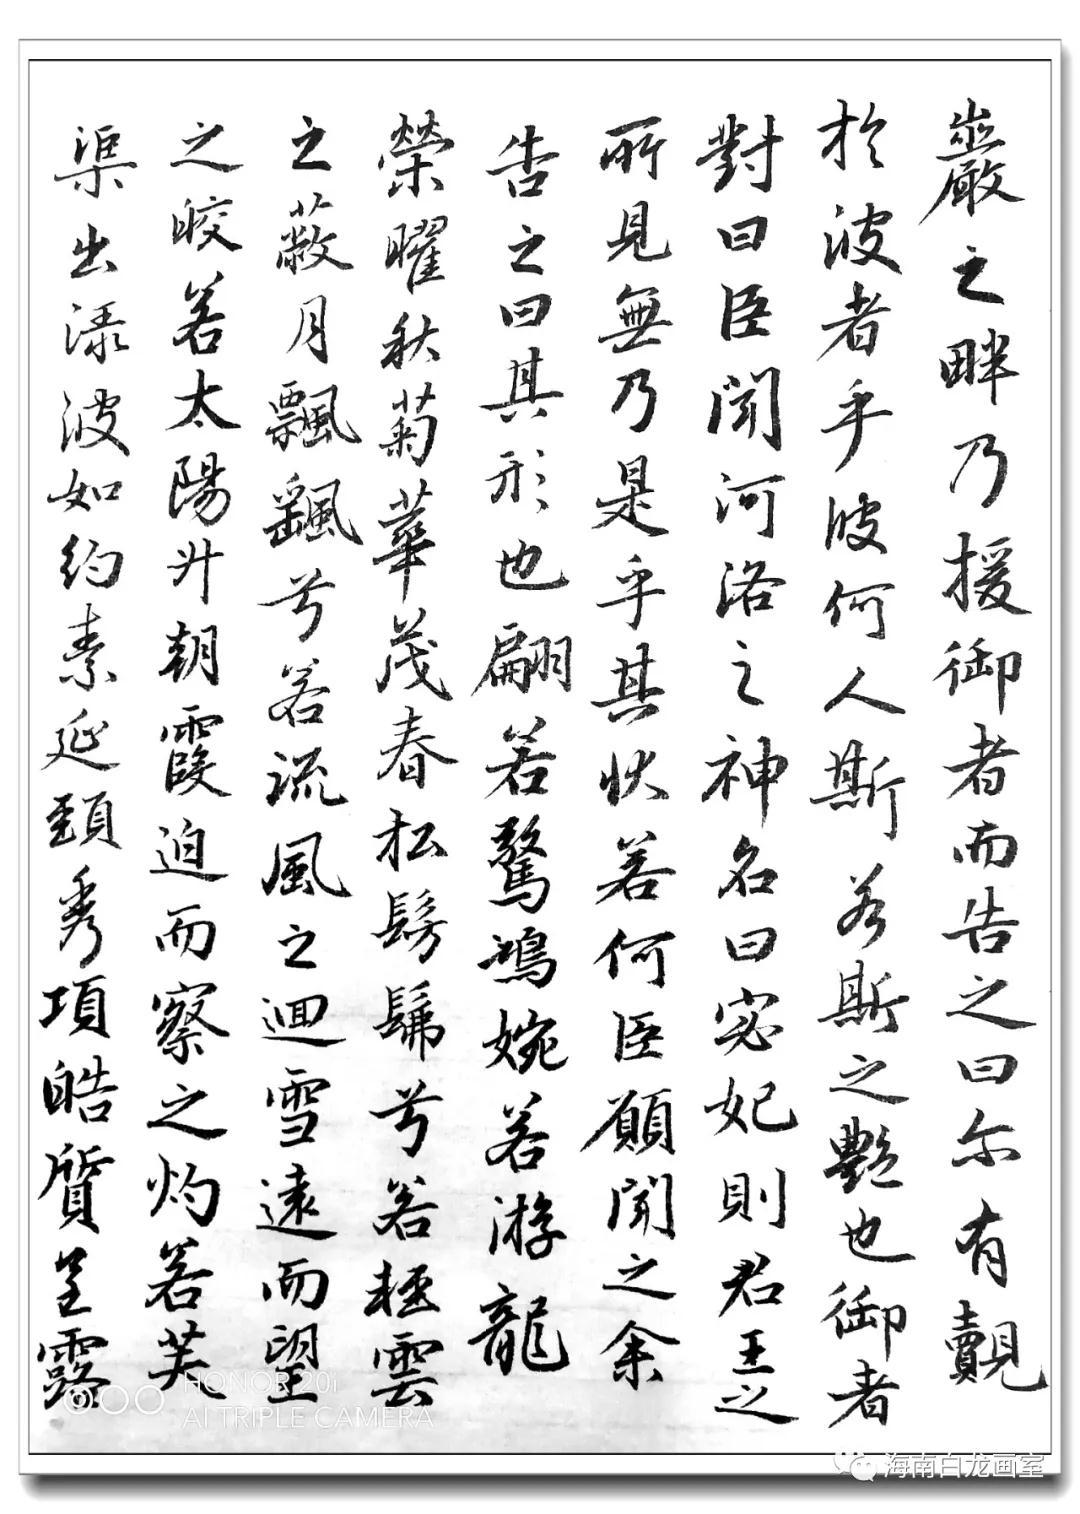 巖之畔乃援御者而告之曰尔有觀
於波者乎彼何人斯若斯之艷也御者
對曰臣聞河洛之神名曰宓妃則君王之
所見無乃是乎其狀若何臣願聞之余
告之曰其形也翩若驚鴻婉若游龍
榮曜秋菊華茂春松髣髴兮若輕雲
之蔽月飄飖兮若流風之迴雪遠而望
之皎若太陽升朝霞迫而察之灼若芙
渠出渌波如約素延頸秀項皓質呈露
HONOR 20i
AI TRIPLE CAMERA
海南白龙画室